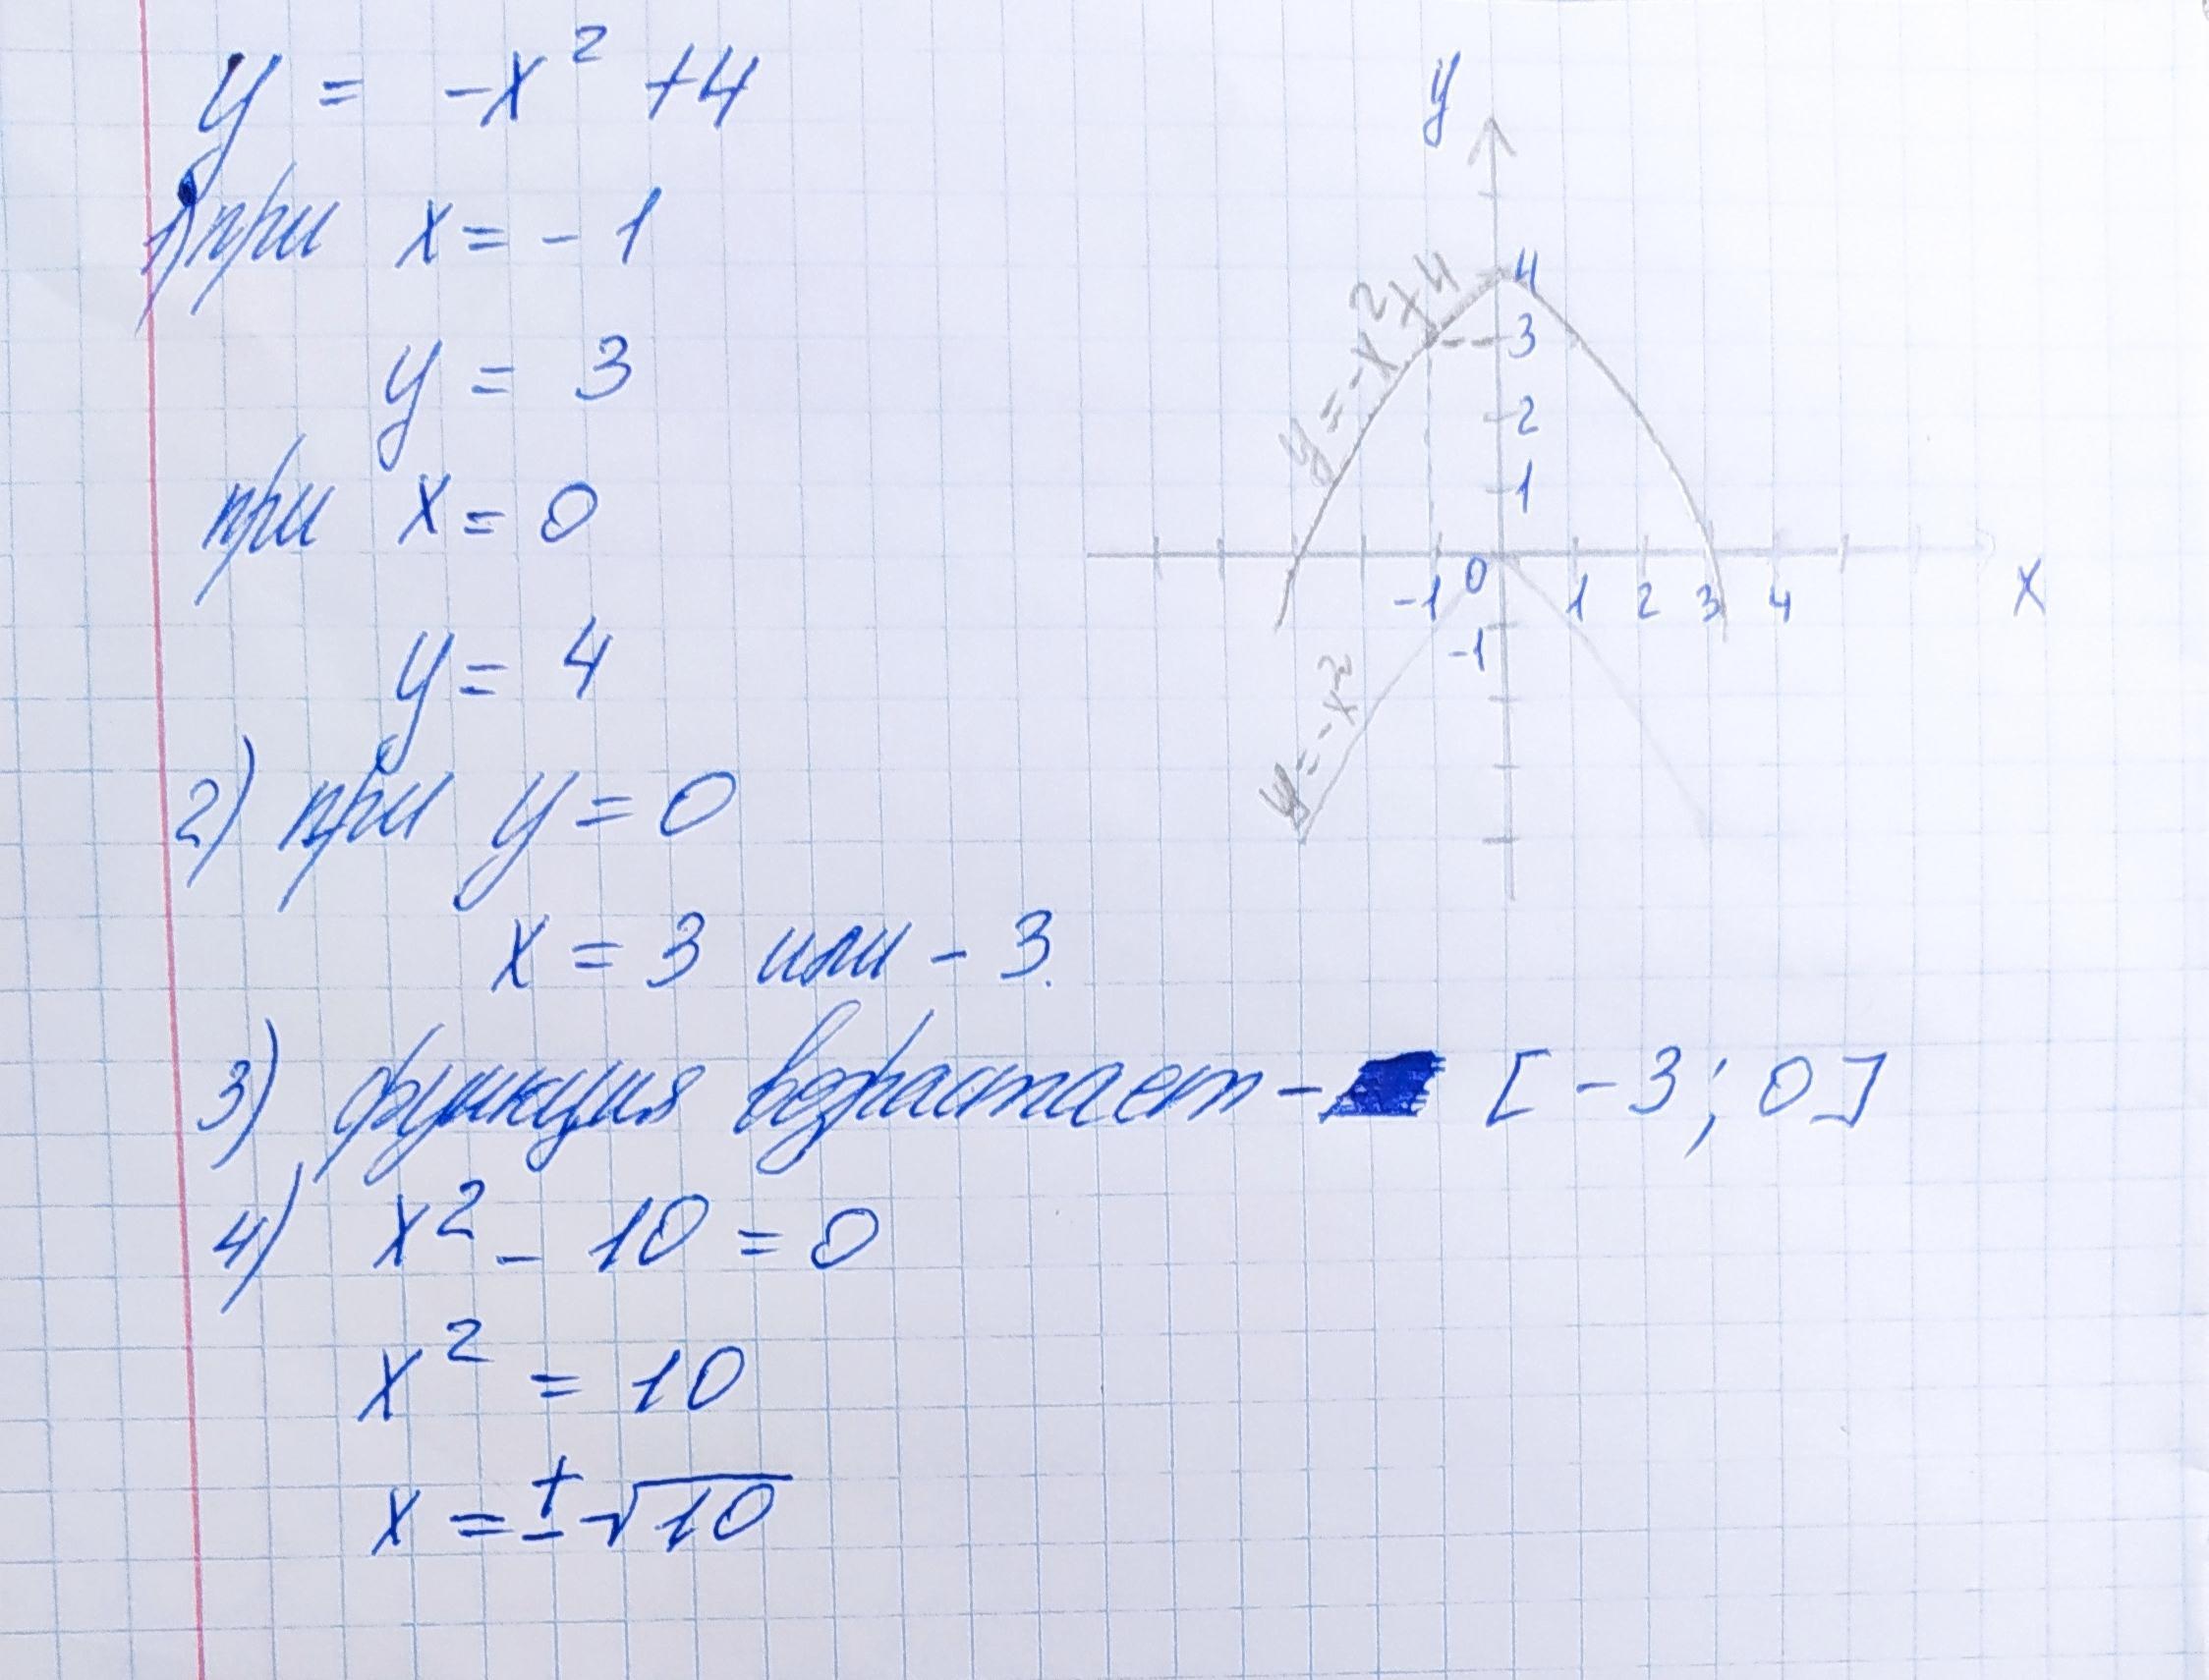 y = -x² +4
1) при x = -1
y = 3
при x = 0
y = 4
2) при y = 0
x = 3 или -3.
3) функция возрастает - [-3; 0]
4) x² - 10 = 0
x² = 10
x = ±√10
y
4
3
2
1
y = -x²+4
-1 0 1 2 3 4 x
-1
y = -x²